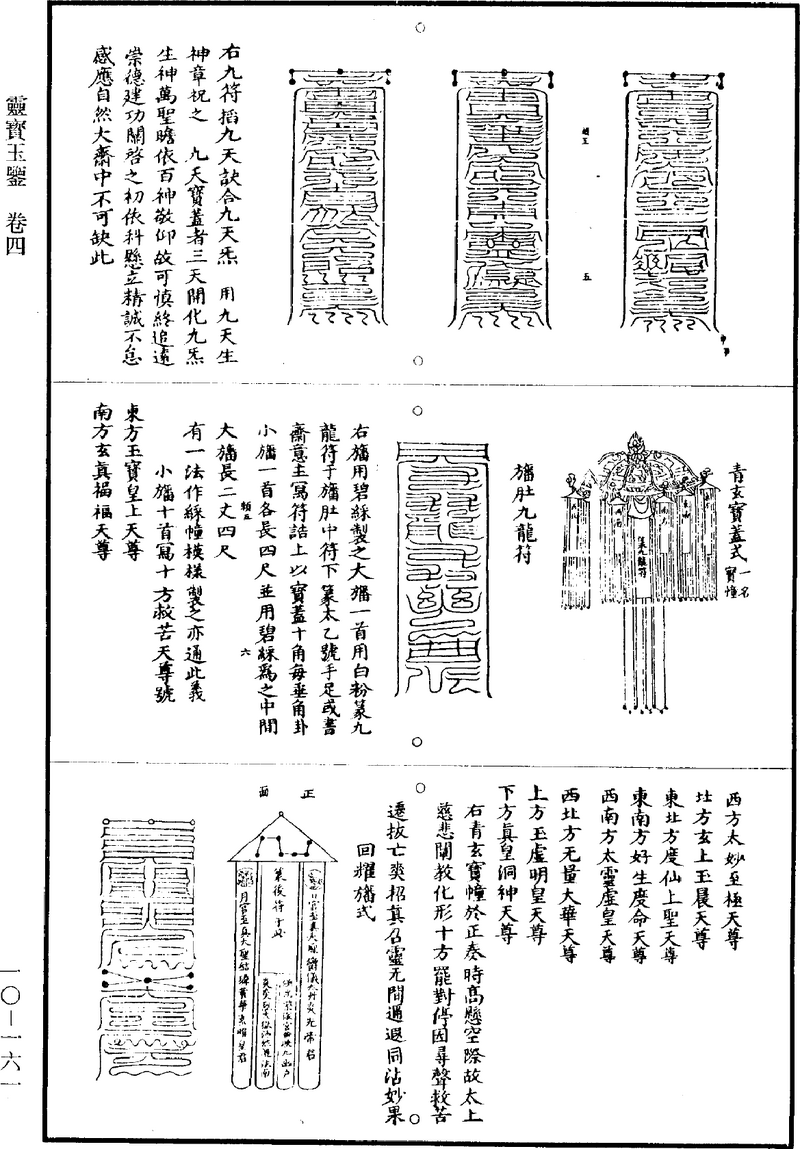 靈寶玉鑒　卷四
右九符搯九天訣合九天炁　用九天生
神章祝之　九天寶蓋者三天開化九炁
生神萬聖瞻依百神敬仰故可慎終追遠
崇德建功關啓之初依科懸立精誠不怠
感應自然大齋中不可缺此
青玄寶蓋式一名寶幢
旛肚九龍符
右旛用碧綵製之大旛一首用白粉篆九
龍符于旛肚中符下篆太乙號手足或書
齋意主寫符誥上以寶蓋十角每垂角卦
小旛一首各長四尺並用碧綵爲之中間
大旛長二丈四尺
有一法作綵幢模樣製之亦通此義
小旛十首寫十方救苦天尊號
東方玉寶皇上天尊
南方玄真福福天尊
西方太妙至極天尊
北方玄上玉晨天尊
東北方度仙上聖天尊
東南方好生度命天尊
西南方太靈虛皇天尊
西北方无量大華天尊
上方玉虛明皇天尊
下方真皇洞神天尊
右青玄寶幢於正奏時高懸空際故太上
慈悲闡教化形十方罷對停因尋聲救苦
遷拔亡爽招真召靈无間遐邇同沾妙果
回耀旛式
正
面
篆後符于此
一〇—一六一